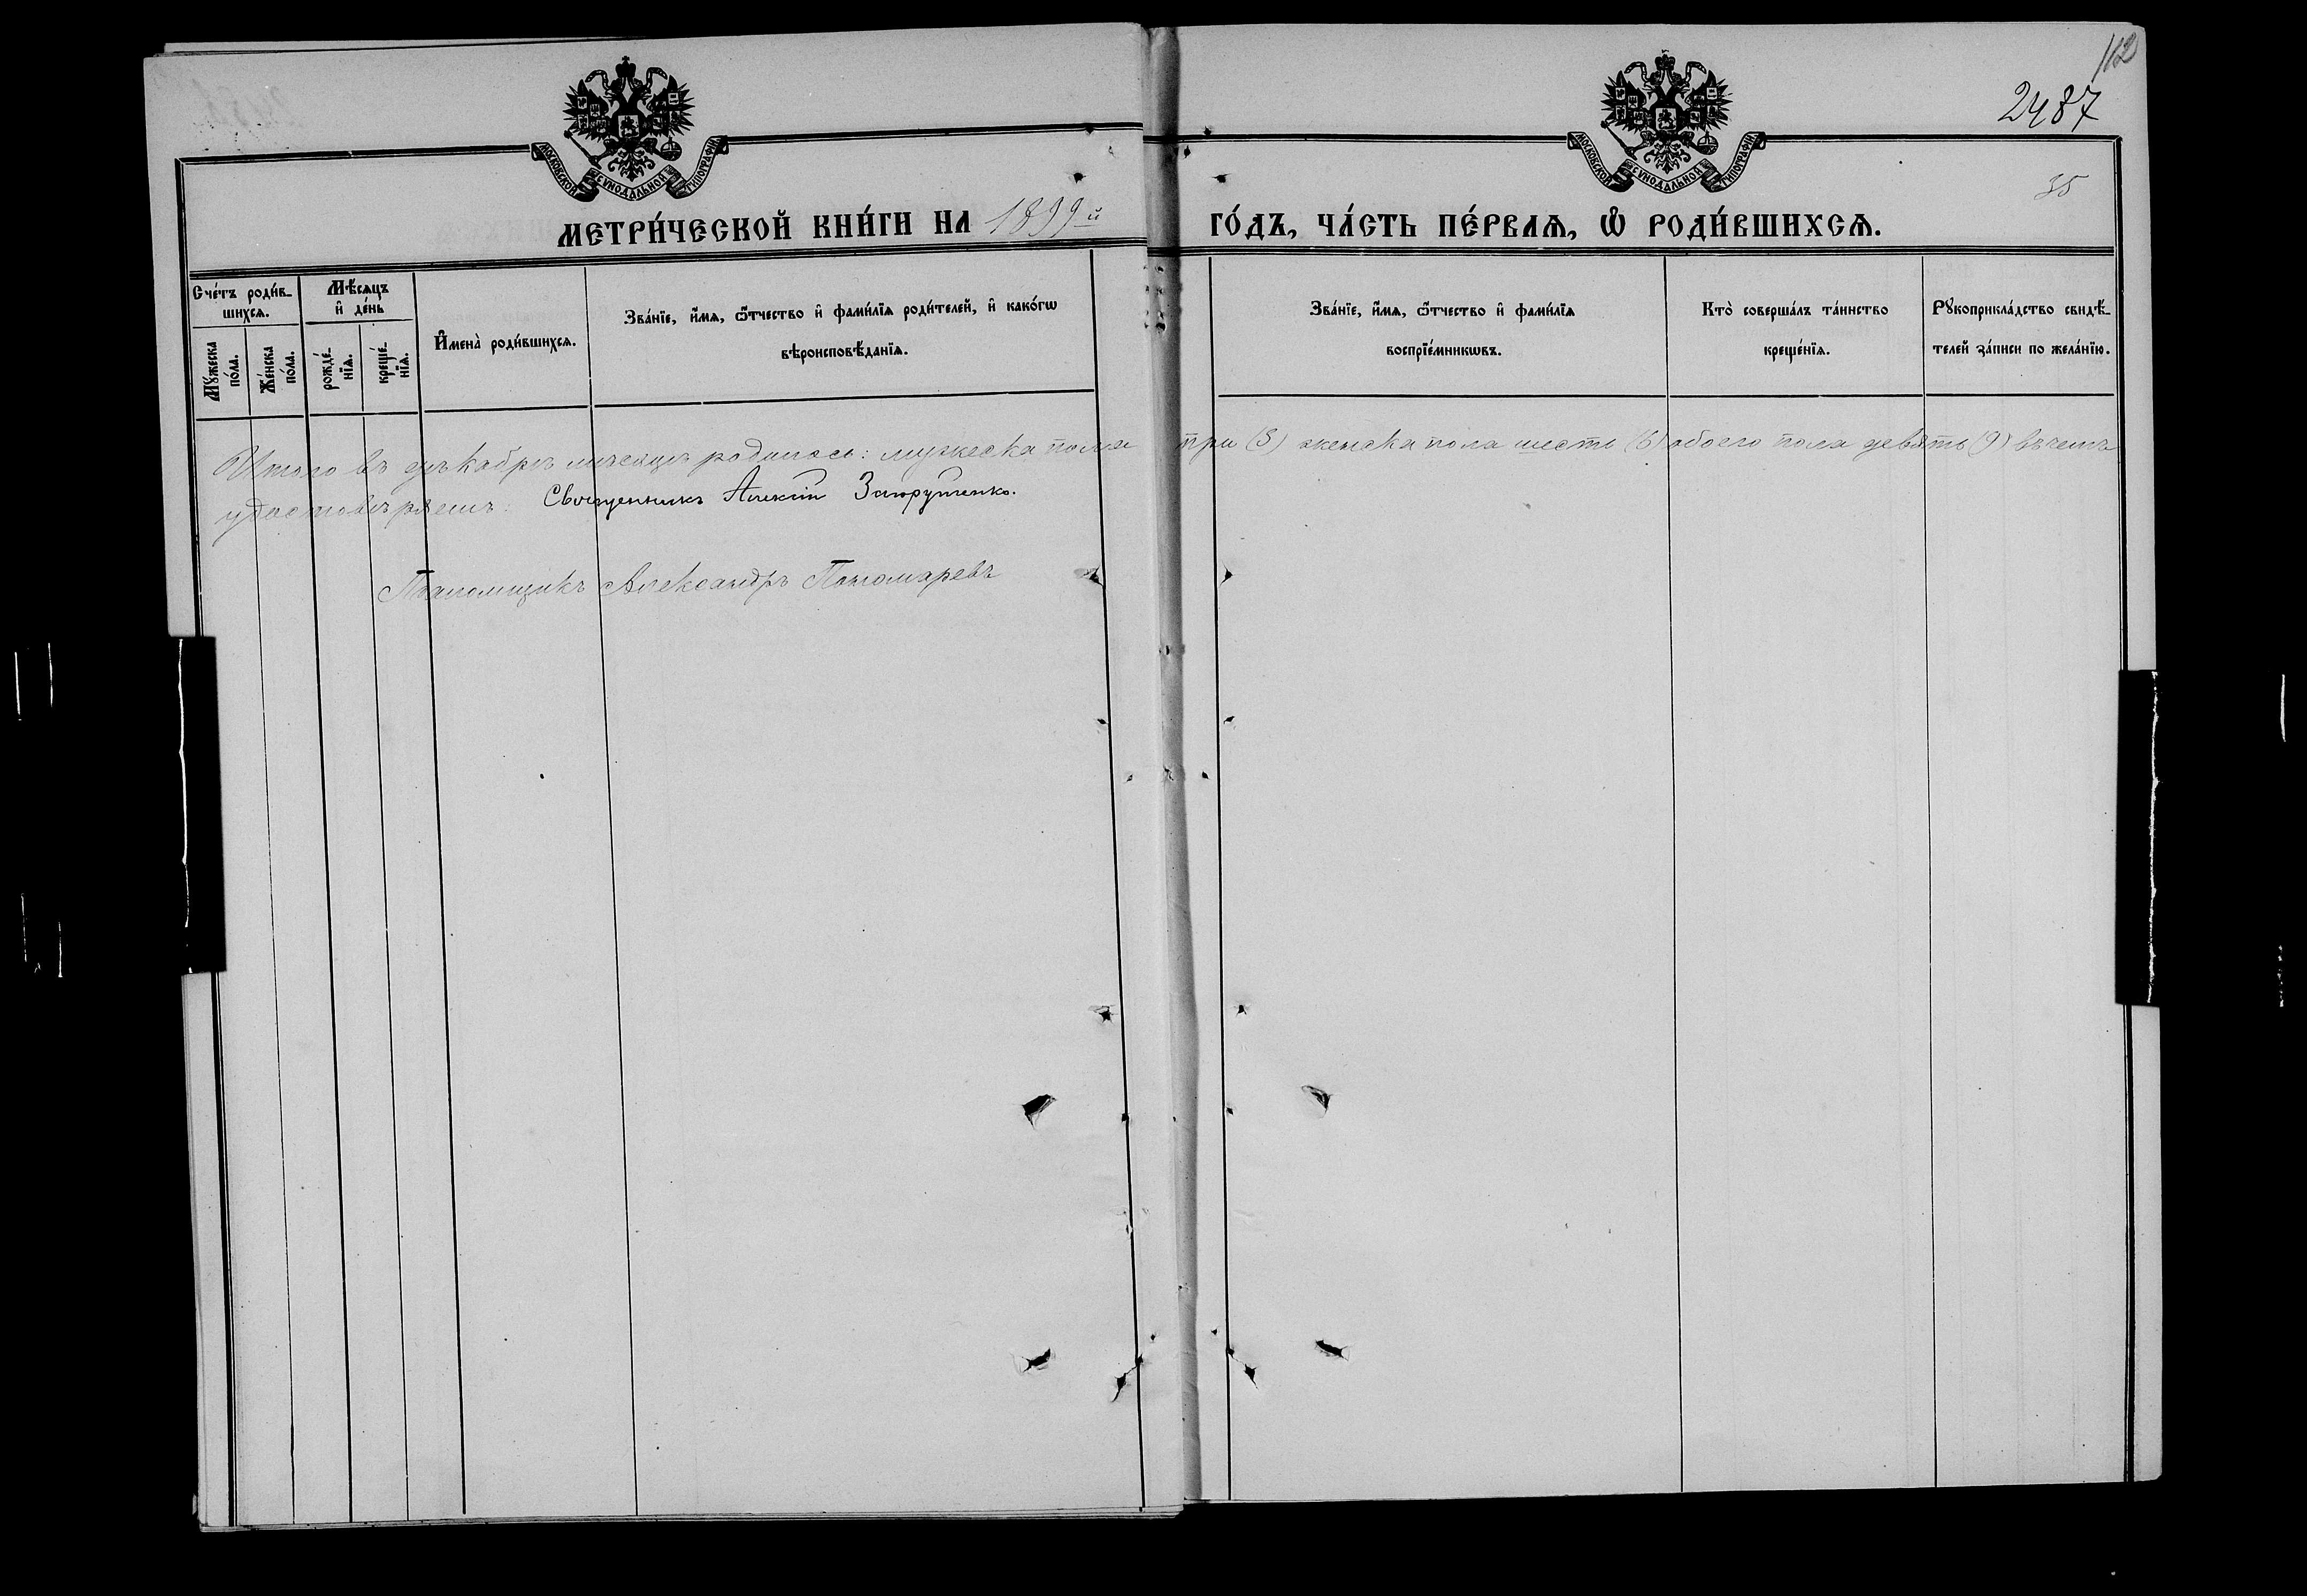 112
2487
35
МОСКОВСКОЙ СѴНОДАЛЬНОЙ ТИПОГРАФІИ.
МОСКОВСКОЙ СѴНОДАЛЬНОЙ ТИПОГРАФІИ.
МЕТРИ́ЧЕСКОЙ КНИ́ГИ НА 1899й ГО́ДЪ, ЧА́СТЬ ПЕ́РВАѦ, Ѽ РОДИ́ВШИХСѦ.
Сче́тъ роди́в-
шихсѧ.
Мꙋ́жеска по́ла.
Же́нска по́ла.
Мѣ́сѧцъ
и҆ де́нь
рожде́-
нїѧ.
креще́-
нїѧ.
И҆мена̀ роди́вшихсѧ.
Зва́нїе, и҆́мѧ, ѿтчество и҆ фами́лїѧ роди́телей, и҆ како́гѡ
вѣроисповѣ́данїѧ.
Зва́нїе, и҆́мѧ, ѿтчество и҆ фами́лїѧ
воспрїе́мникѡвъ.
Кто̀ соверша́лъ та́инство
креще́нїѧ.
Рꙋкоприкла́дство свидѣ́-
телей за́писи по жела́нїю.
Итого въ декабрѣ мѣсяцѣ родилось: мужеска пола три (3) женска пола шесть (6) обоего пола девять (9) въ чемъ
удостовѣряемъ: Священникъ Алексій
Псаломщикъ Александръ Пономаревъ